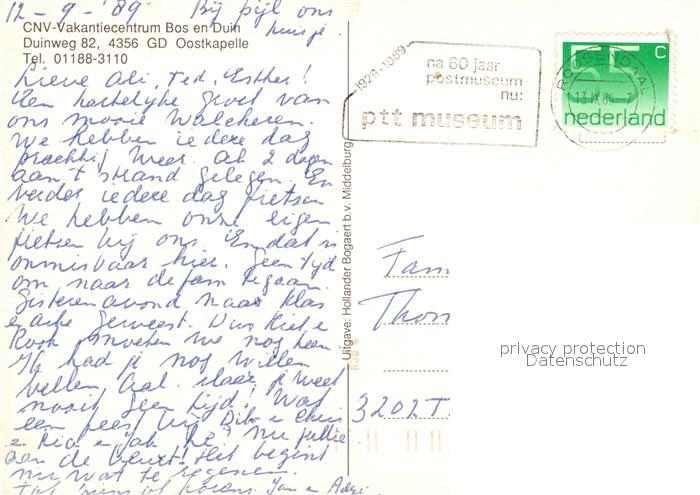 12-9-'89. Bij pijl ons
huisje.
CNV-Vakantiecentrum Bos en Duin
Duinweg 82, 4356 GD Oostkapelle
Tel. 01188-3110
Lieve Ali, Ted, Esther!
Een hartelijke groet van
ons mooie Walcheren.
We hebben iedere dag
prachtig weer. Al 2 dagen
aan 't strand gelegen. En
verder iedere dag fietsen
We hebben onze eigen
fietsen bij ons. En dat is
onmisbaar hier. Geen tijd
om naar de fam te gaan.
Gisteren avond naar Klas
geweest. Dus Riet e
Rook moeten we nog heen
Ik had je nog willen
bellen, maar je weet
nooit geen tijd! Was
een feest bij
e Ria e Jak hè? Nu jullie
aan de beurt! Het begint
nu wat te regenen.
Tot Jan e
Uitgave: Hollander Bogaert b.v. Middelburg
1929-1989
na 60 jaar
postmuseum
nu:
ptt museum
ROOSENDAAL
13.IX.89-7
55 c
nederland
Fam
Thom
3202T
privacy protection
Datenschutz